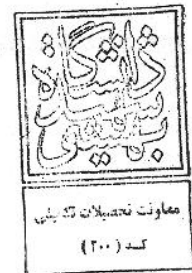 دانشگاه
شهید
بهشتی
معاونت تحصیلات تکمیلی
کد ( ۲۰۰ )